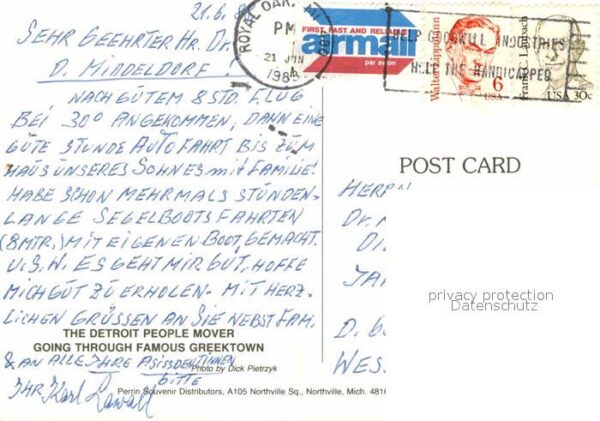 21.6.
SEHR GEEHRTER HR. DR.
D. MIDDELDORF!
NACH GUTEM 8 STD. FLUG
BEI 30° ANGEKOMMEN, DANN EINE
GUTE STUNDE AUTOFAHRT BIS ZUM
HAUS UNSERES SOHNES mit FAMILIE!
HABE SCHON MEHRMALS STUNDEN-
LANGE SEGELBOOTSFAHRTEN
(8MTR.) MIT EIGENEN BOOT, GEMACHT.
U.S.W. ES GEHT MIR GUT, HOFFE
MICH GUT ZU ERHOLEN - MIT HERZ-
LICHEN GRÜSSEN AN SIE NEBST FAM.
& AN ALLE IHRE ASISSDENTINNEN
BITTE
IHR Karl
THE DETROIT PEOPLE MOVER
GOING THROUGH FAMOUS GREEKTOWN
Photo by Dick Pietrzyk
Perrin Souvenir Distributors, A105 Northville Sq., Northville, Mich. 4816
ROYAL OAK, MI
PM
21 JUN
FIRST, FAST AND RELIABLE
airmail
par avion
HELP GOODWILL INDUSTRIES
HELP THE HANDICAPPED
Walter Lippmann
6
USA
Frank C. Laubach
USA 30c
POST CARD
HERRN
DR.
D.
WES
privacy protection
Datenschutz